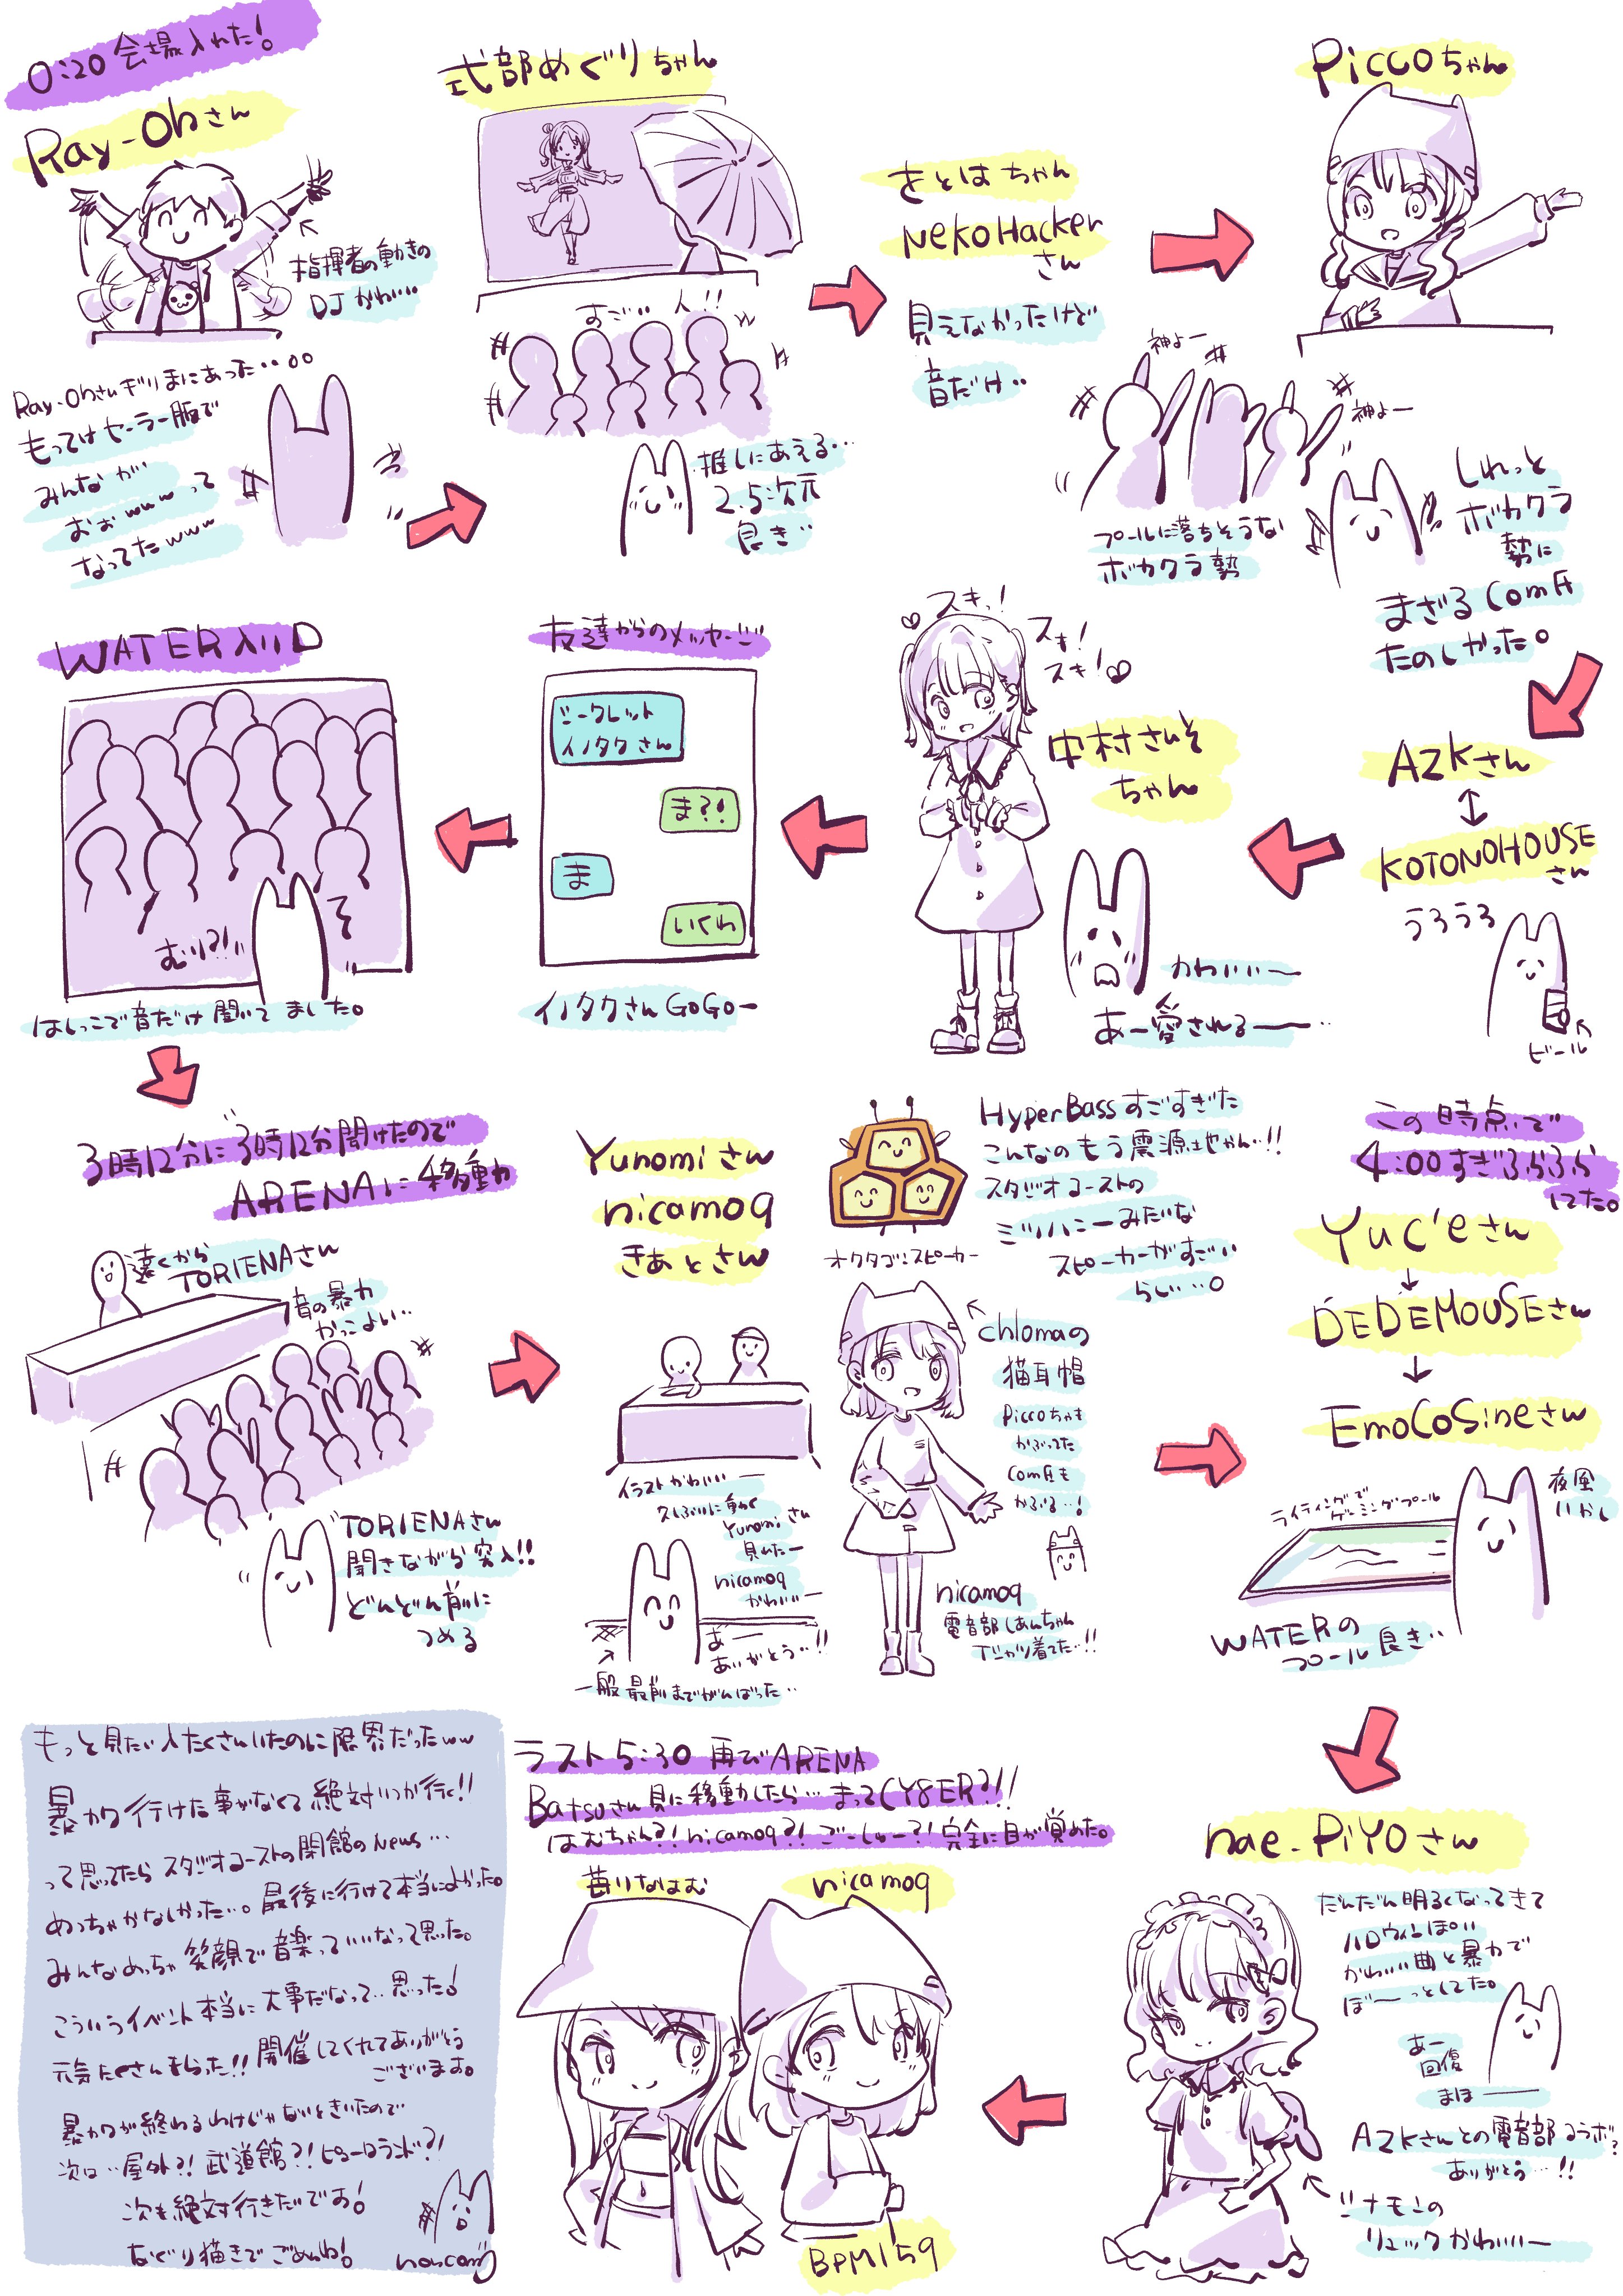 0:20 会場入れた!
Ray-Ohさん
指揮者の動きの
DJ かわいい
Ray-Ohさんぎりまにあった…。。
もってけセーラー服で
みんなが
おぉwwwって
なってたwww
式部めぐりちゃん
すごい 人!!
推しにあえる…
2.5次元
良き…
さとはちゃん
Neko Hacker
さん
見えなかったけど
音だけ…
Piccoちゃん
神よー
神よー
プールに落ちそうな
ボカクラ勢
しれっと
ボカクラ
勢に
まざるcom氏
たのしかった。
AZKさん
KOTONOHOUSE
さん
うろうろ
ビール
スキっ!
スキ!
スキ!
中村さんそ
ちゃん
かわいいー
あー愛されるー…
友達からのメッセージ
シークレット
イノタクさん
ま?!
ま
いくわ
イノタクさんGoGoー
WATER入り口
むり?!
はしっこで音だけ聞いてました。
3時12分に3時12分聞けたので
ARENAに移動
遠くから
TORIENAさん
音の暴力
かっこよい…
TORIENAさん
聞きながら突入!!
どんどん前に
つめる
Yunomiさん
nicamoq
きあとさん
イラストかわいいー
久しぶりに動く
Yunomiさん
見れたー
nicamoq
かわいいー
あー
ありがとう…!!
一般最前までがんばった…
オクタゴンスピーカー
HyperBassすごすぎた
こんなのもう震源地やん…!!
スタジオコーストの
ミツバニーみたいな
スピーカーがすごい
らしい…。
chlomaの
猫耳帽
Piccoちゃんも
かぶってた
com氏も
かぶる…!
nicamoq
電音部しあんちゃん
Tシャツ着てた…!!
この時点で
4:00すぎふらふら
してた。
Yuc'eさん
DÉDÉMOUSEさん
EmoCosineさん
ライティングで
ゲーミングプール
夜風
いやし
WATERの
プール良き…
nae-PiYOさん
だんだん明るくなってきて
ハロウィンぽい
かわいい曲と暴力で
ぼーっとしてた。
あー
回復
まほー
AZKさんとの電音部コラボ?
ありがとう…!!
シナモンの
リュックかわいいー
ラスト5:30 再びARENA
Batsuさん見に移動したら…まってCY8ER?!!
はむちゃん?!nicamoq?!ごーしゅー?!完全に目が覚めた。
苺りなはむ
nicamoq
BPM159
もっと見たい人たくさんいたのに限界だったww
暴力行けた事がなくて絶対いつか行く!!
って思ってたらスタジオコーストの閉館のNews…
めっちゃかなしかった…。最後に行けて本当によかった。
みんなめっちゃ笑顔で音楽っていいなって思った。
こういうイベント本当に大事だなって…思った!
元気たくさんもらった!!開催してくれてありがとう
ございます。
暴力が終わるわけじゃないときいたので
次は…屋外?!武道館?!ピューロランド?!
次も絶対行きたいです!
なぐり描きでごめんね!